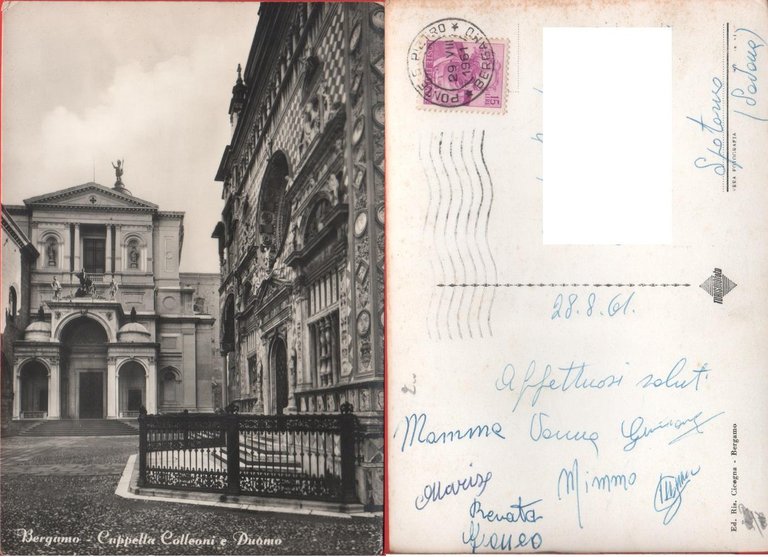 Bergamo - Cappella Colleoni e Duomo
PONTE S. PIETRO * BERGAMO *
29 VIII 1961
15
Spotorno
(Savona)
VERA FOTOGRAFIA
28.8.61.
Affettuosi saluti
Mamma Vanna
Mimmo
Marisa
Renata
Franco
Ed. Ris. Cicogna - Bergamo